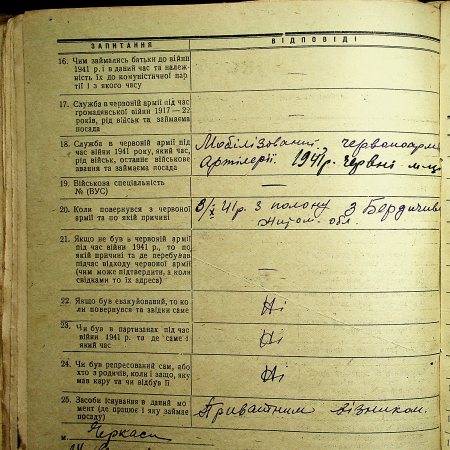 ЗАПИТАННЯ ВІДПОВІДІ
16. Чим займались батьки до війни
1941 р. і в даний час та належ-
ність їх до комуністичної пар-
тії і з якого часу
—
17. Служба в червоній армії під час
громадянської війни 1917—22
років, рід військ та займаєма
посада
—
18. Служба в червоній армії під
час війни 1941 року, який час,
рід військ, останнє військове
звання та займаєма посада
Мобілізований червоноарм
Артілерії. 1941 р. червні
19. Військова спеціальність
№ (ВУС)
—
20. Коли повернувся з червоної
армії та по якій причині
3/X 41 р. З полону з Бердичива
Житом. обл.
21. Якщо не був в червоній армії
під час війни 1941 р., то по
якій причині та де перебував
підчас відходу червоної армії
(чим може підтвердити, з коли
свідками то їх адреса)
—
22. Якщо був евакуйований, то ко-
ли повернувся та звідки саме
Ні
23. Чи був в партизанах під час
війни 1941 р. та де саме і
який час
Ні
24. Чи був репресований сам, або
хто з родичів, коли і защо, яку
мав кару та чи відбув її
Ні
25. Засоби існування в даний мо-
мент (де працює і яку займає
посаду)
Приватним візником.
м. Черкаси